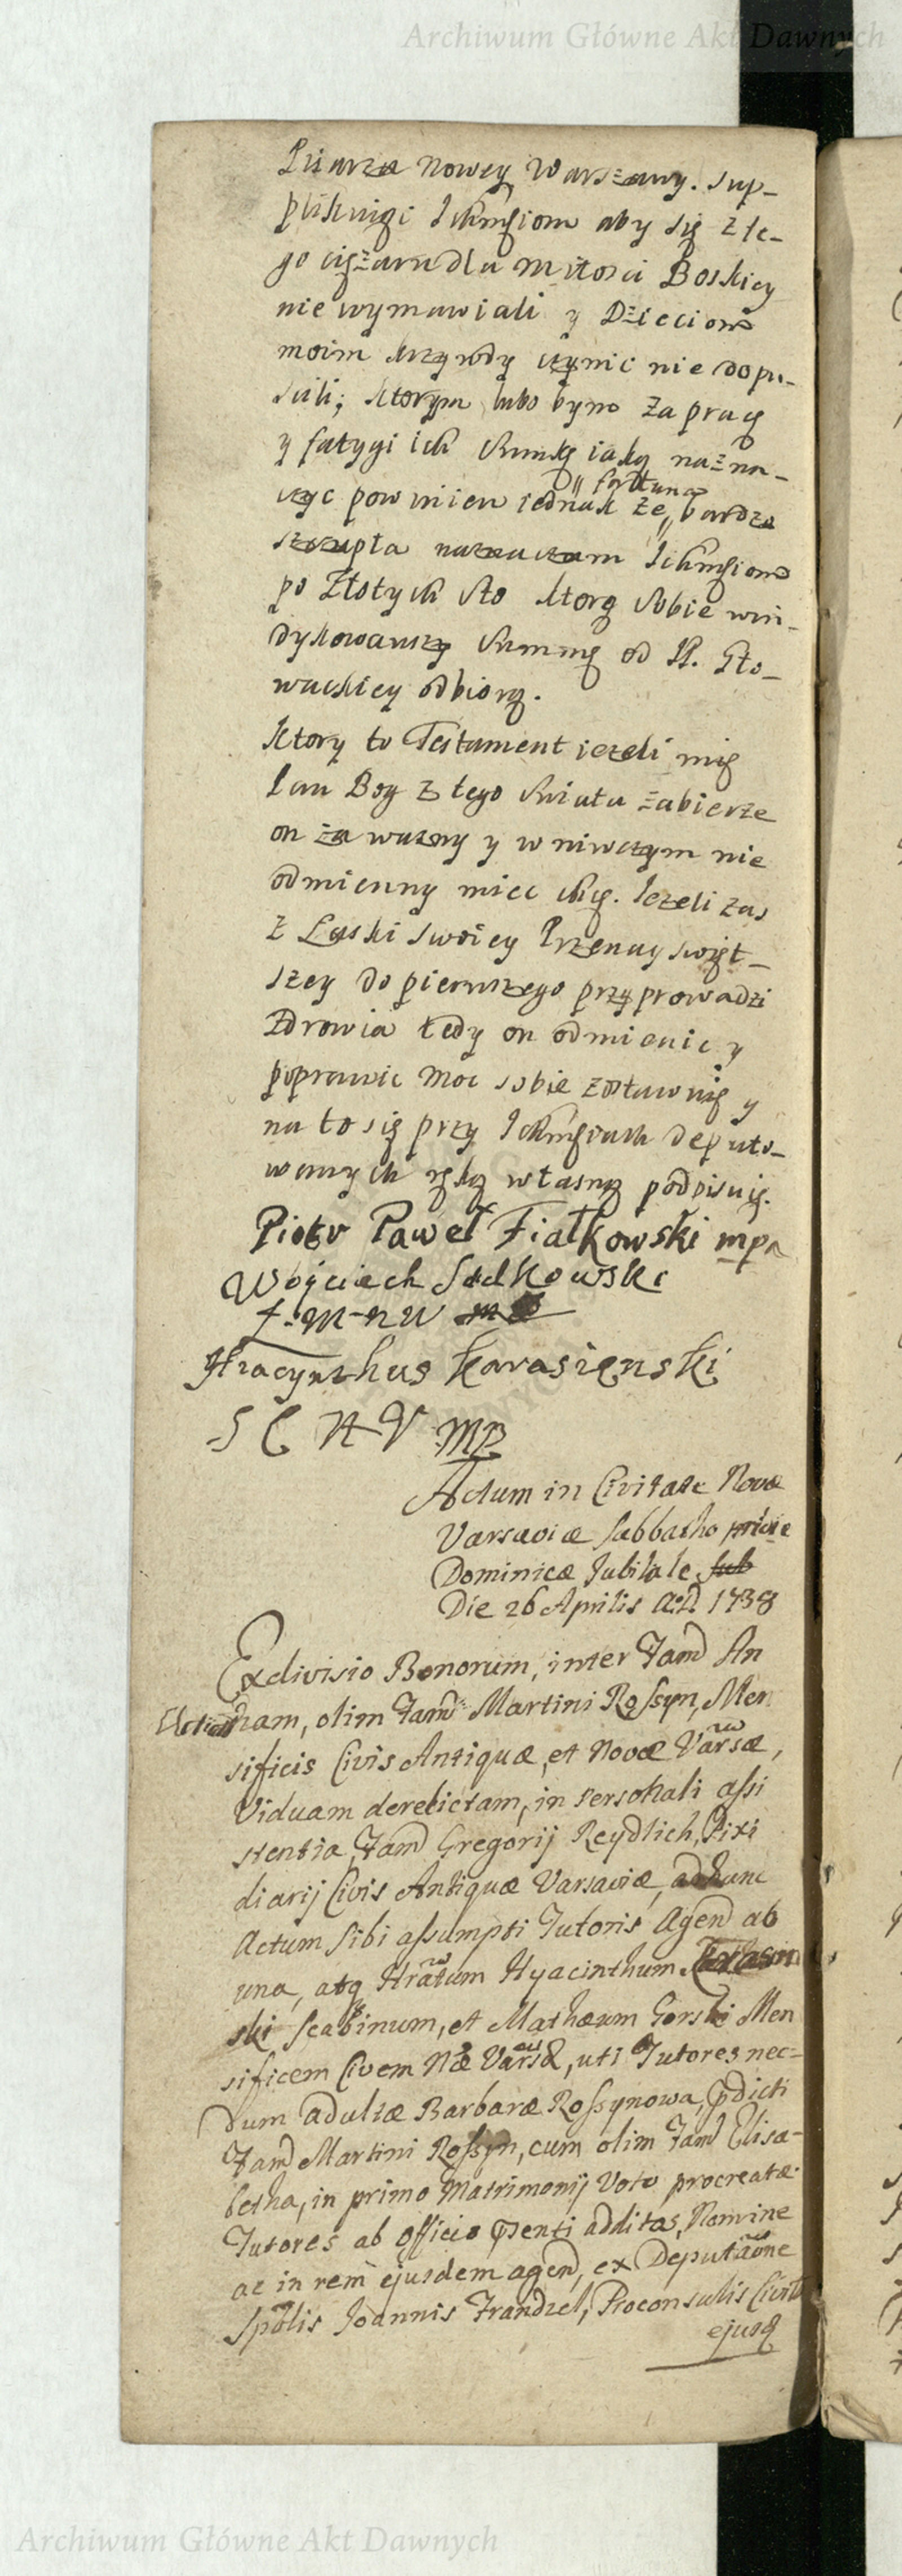 Archiwum Główne Akt Dawnych
Pisarza Nowey Warszawy. Sup-
plikuięć Ichmsciom aby się z te-
go ciężaru dla miłosci Boskiey
nie wymawiali y Dzieciom
moim krzywdy czynic nie dopu-
scili; ktorym lubo bym za pracę
y fatygi ich summę iaką nazna-
czyc powinien iednak że „ bardzo
„ fortuna
szczupła naznaczam Ichmsciom
po Złotych sto ktorą sobie win-
dykowawszy summę od JP. Gło-
wackiey odbiorą.
Ktory to Testament ieżeli mię
Pan Bog z tego swiata zabierze
on za wazny y w niwczym nie
odmienny miec chcę. Jezeli zas
z Łaski swoiey Przenayswięt-
szey do pierwszego przyprowadzi
Zdrowia tedy on odmienic y
poprawic moc sobie zostawuię y
na to się przy Ichmsciach deputo-
wanych ręką własną podpisuię.
Piotr Paweł Fiałkowski mpa
Woyciech Sadkowski
Hyacynthus Karasienski
S C N V MP
Actum in Civitate Nova
Varsaviæ Sabbatho pridie
Dominicæ Jubilate sub
Die 26 Aprilis A:D 1738
Exdivisio Bonorum, inter Famd An
nam, olim Famti Martini Rossyn, Men
sificis Civis Antiquæ, et Novæ Varsæ,
Viduam derelictam, in personali assi
stentia, Famd Gregorij Reydlich, Pixi
diarij Civis Antiquæ Varsaviæ, ad hunc
Actum sibi assumpti Tutoris, Agend ab
una, atq Hratum Hyacinthum Karasin
ski Scabinum, et Mathæum Gorski Men
sificem Civem Næ Varsæ, uti Tutores nec-
dum adultæ Barbaræ Rossynowa, pdicti
Famd Martini Rossyn, cum olim Famd Elisa-
betha, in primo Matrimonij Voto procreatæ
Tutores ab officio psenti additas, Nomine
ac in rem ejusdem agend, ex Deputaone
Spblis Joannis Frandzel, Proconsulis Civit
ejusq
Archiwum Główne Akt Dawnych